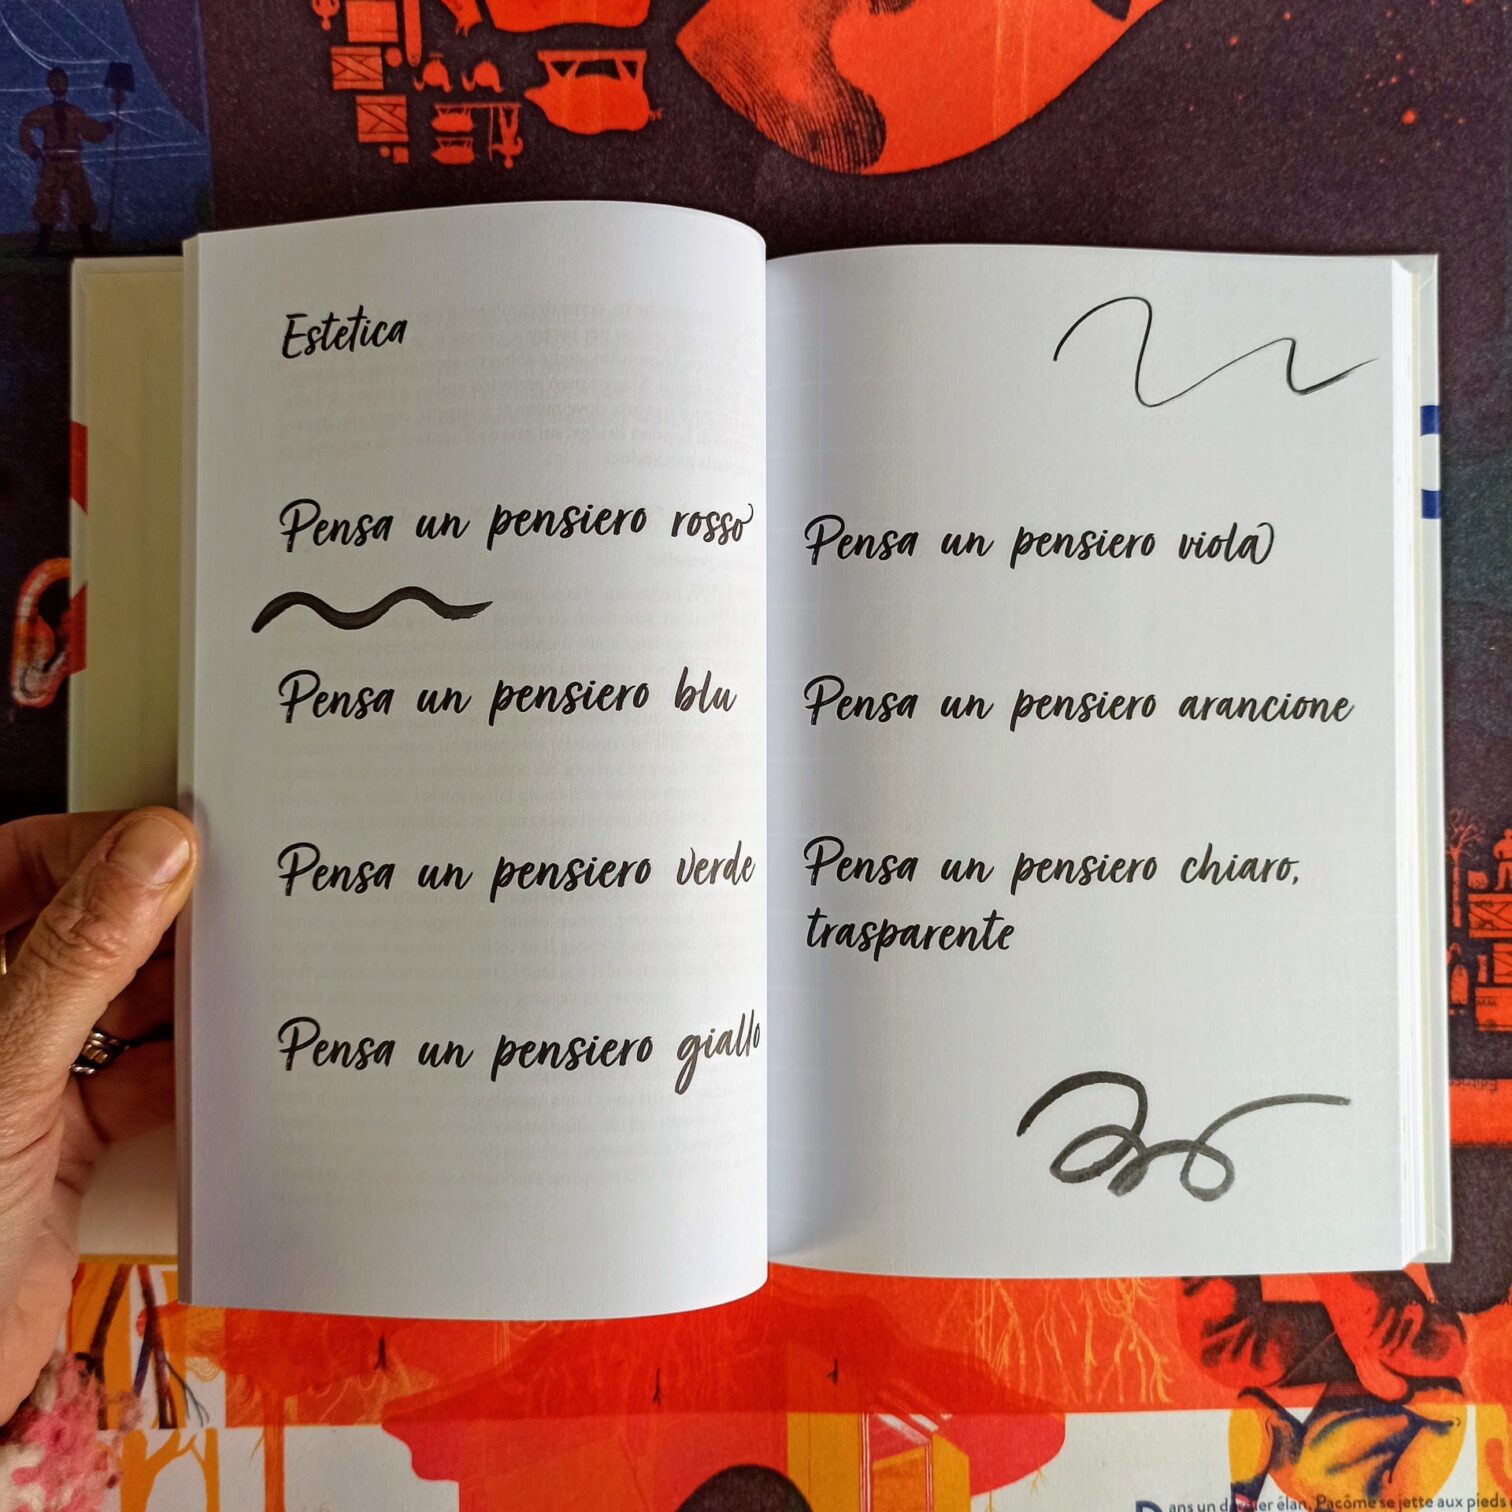 Estetica
Pensa un pensiero rosso
Pensa un pensiero blu
Pensa un pensiero verde
Pensa un pensiero giallo
Pensa un pensiero viola
Pensa un pensiero arancione
Pensa un pensiero chiaro,
trasparente
Dans un dernier élan, Pacôme se jette aux pieds